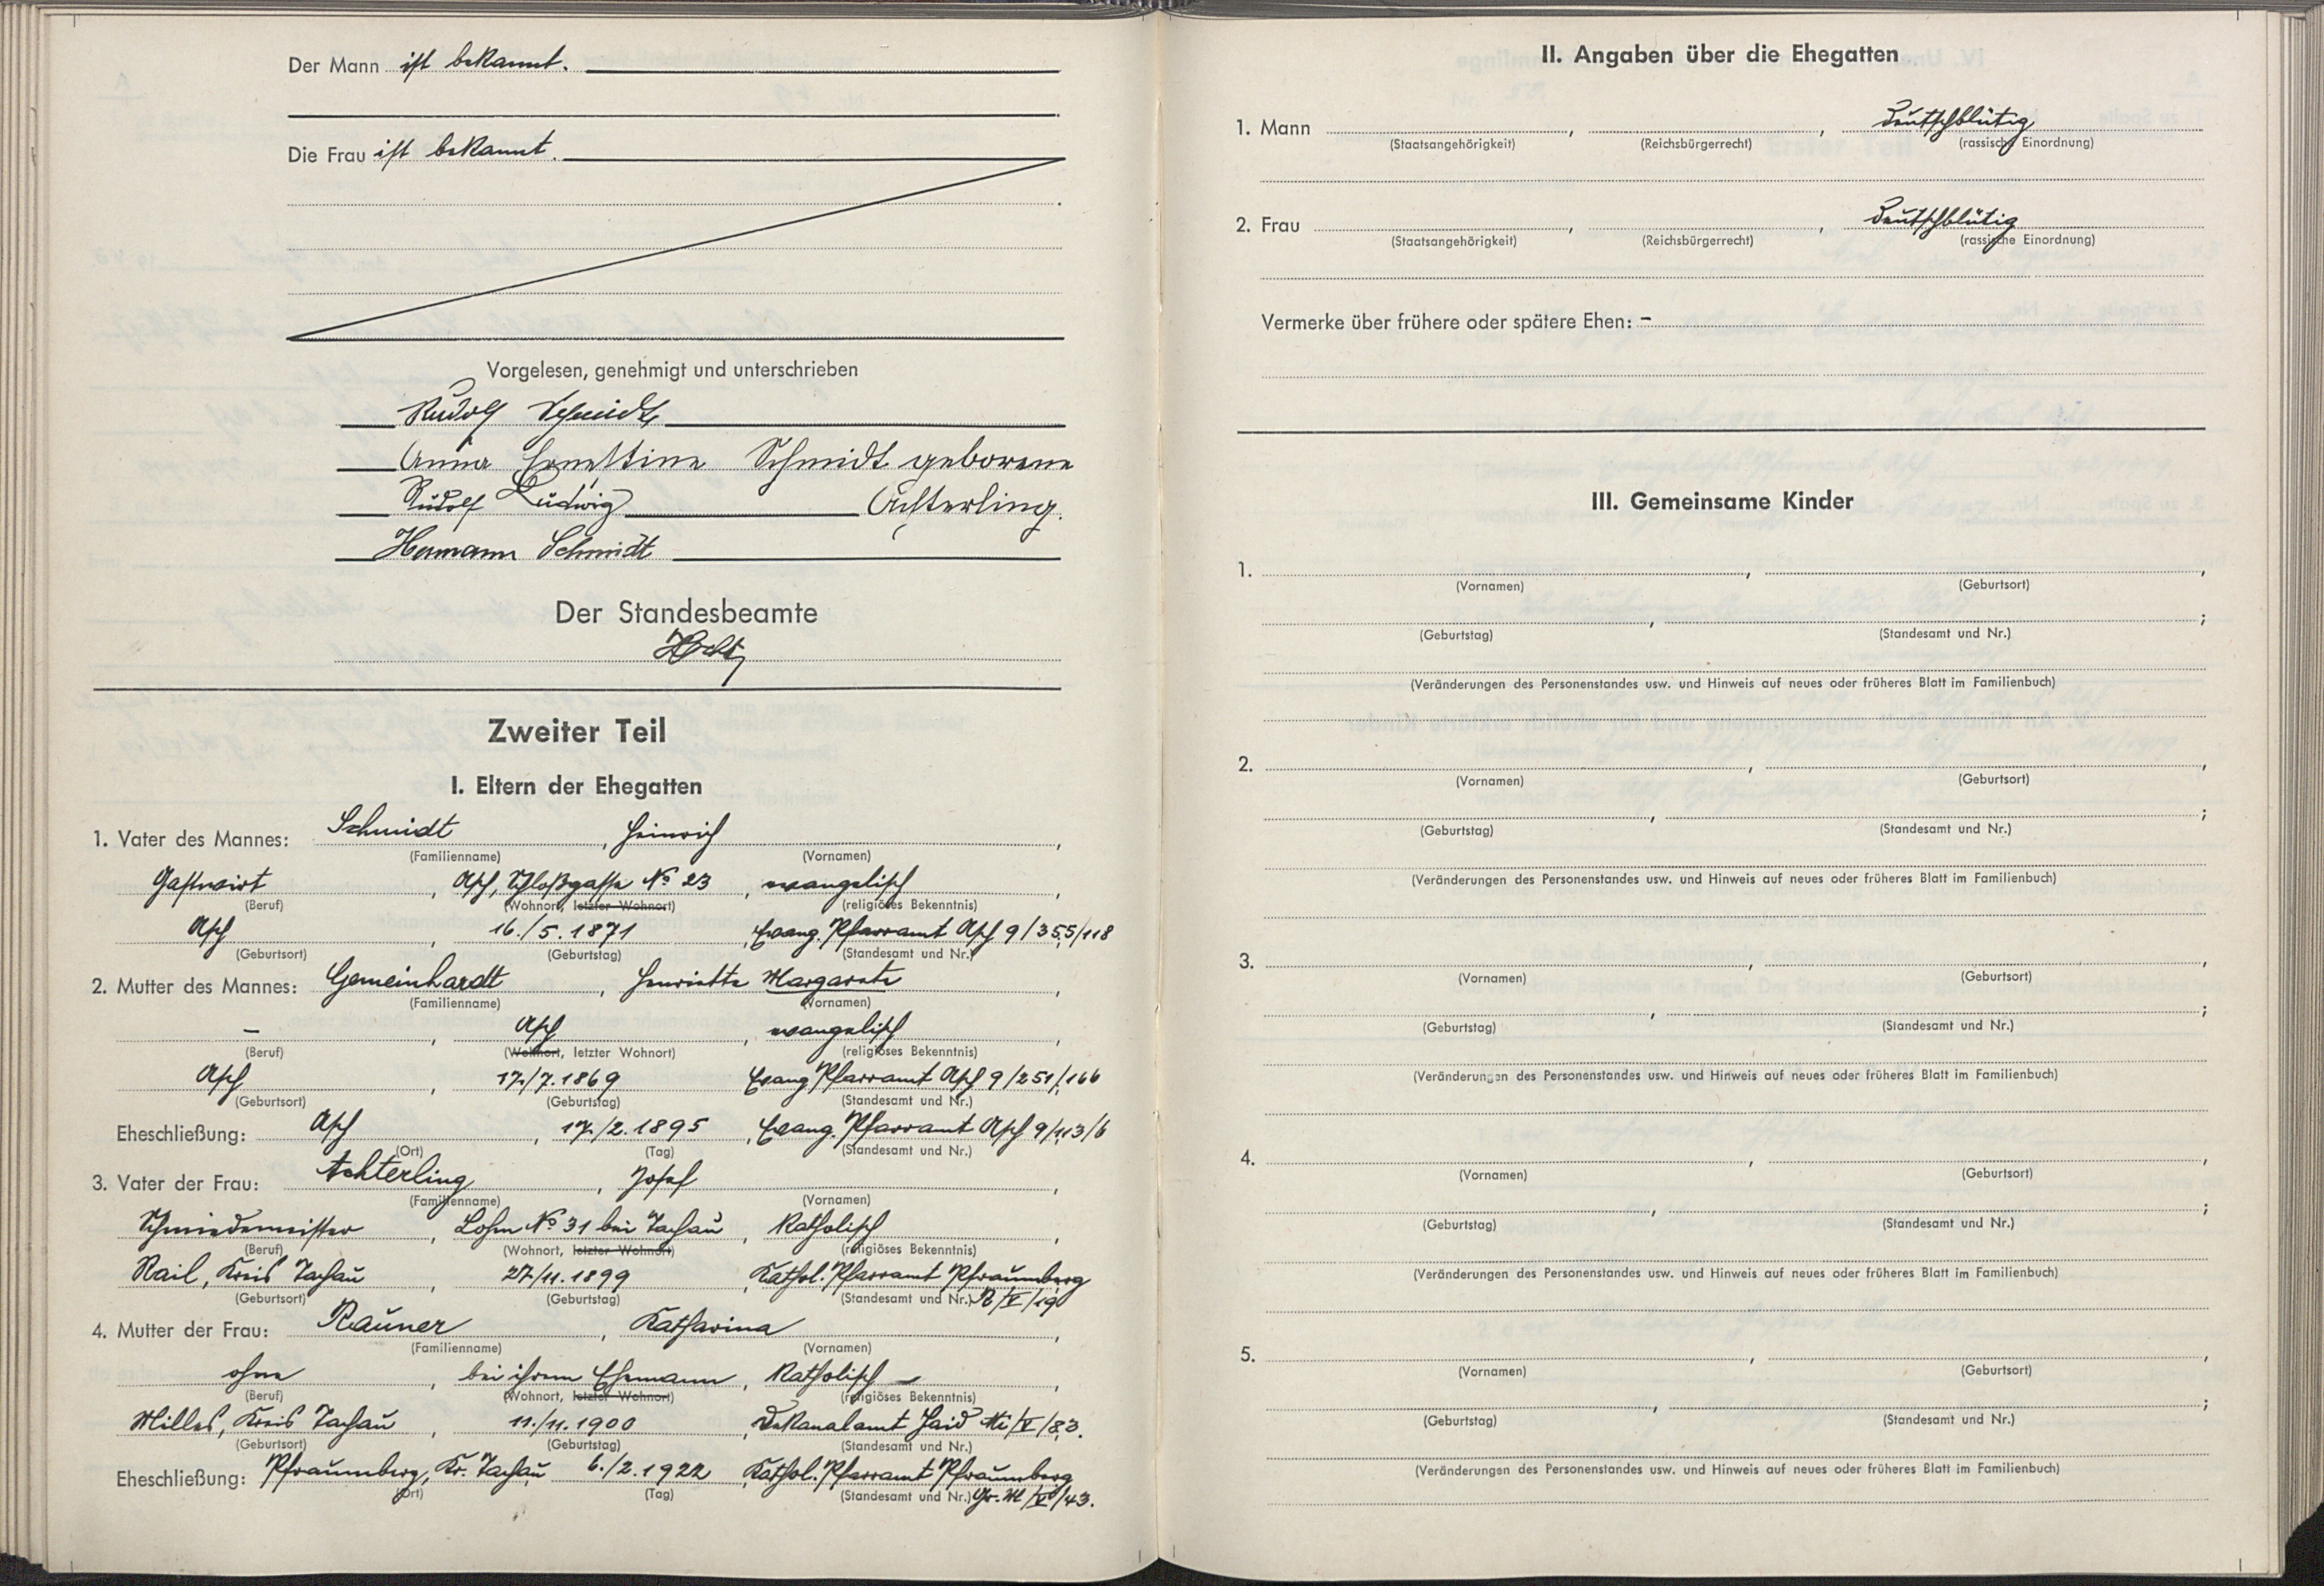 Der Mann ist bekannt.
Die Frau ist bekannt.
Vorgelesen, genehmigt und unterschrieben
Rudolf Schmidt
Anna Ernestine Schmidt geborene
Rudolf Ludwig Achterling.
Hermann Schmidt
Der Standesbeamte
Zweiter Teil
I. Eltern der Ehegatten
1. Vater des Mannes: Schmidt, Heinrich,
(Familienname) (Vornamen)
Gastwirt, Asch, Schloßgasse No 23, evangelisch,
(Beruf) (Wohnort, letzter Wohnort) (religiöses Bekenntnis)
Asch, 16./5.1871, Evang. Pfarramt Asch 9/355/118
(Geburtsort) (Geburtstag) (Standesamt und Nr.)
2. Mutter des Mannes: Gemeinhardt, Henriette Margarete,
(Familienname) (Vornamen)
–, Asch, evangelisch,
(Beruf) (Wohnort, letzter Wohnort) (religiöses Bekenntnis)
Asch, 17./7.1869 Evang. Pfarramt Asch 9/251/166
(Geburtsort) (Geburtstag) (Standesamt und Nr.)
Eheschließung: Asch, 17./2.1895, Evang. Pfarramt Asch 9/113/6
(Ort) (Tag) (Standesamt und Nr.)
3. Vater der Frau: Achterling, Josef,
(Familienname) (Vornamen)
Schmiedemeister, Lohm No 31 bei Tachau, Katholisch,
(Beruf) (Wohnort, letzter Wohnort) (religiöses Bekenntnis)
Rail, Kreis Tachau, 27./11.1899, Kathol. Pfarramt Pfraumberg
(Geburtsort) (Geburtstag) (Standesamt und Nr.) R/V/19
4. Mutter der Frau: Rauner, Katharina,
(Familienname) (Vornamen)
ohne, bei ihrem Ehemann, Katholisch –,
(Beruf) (Wohnort, letzter Wohnort) (religiöses Bekenntnis)
Milles, Kreis Tachau, 11./11.1900, Dekanalamt Haid Mi/V/83.
(Geburtsort) (Geburtstag) (Standesamt und Nr.)
Eheschließung: Pfraumberg, Kr. Tachau, 6./2.1922, Kathol. Pfarramt Pfraumberg
(Ort) (Tag) (Standesamt und Nr.) /V/43.
II. Angaben über die Ehegatten
1. Mann , , Deutschblütig
(Staatsangehörigkeit) (Reichsbürgerrecht) (rassische Einordnung)
2. Frau , , Deutschblütig
(Staatsangehörigkeit) (Reichsbürgerrecht) (rassische Einordnung)
Vermerke über frühere oder spätere Ehen: –
III. Gemeinsame Kinder
1. , ,
(Vornamen) (Geburtsort)
, ;
(Geburtstag) (Standesamt und Nr.)
(Veränderungen des Personenstandes usw. und Hinweis auf neues oder früheres Blatt im Familienbuch)
2. , ,
(Vornamen) (Geburtsort)
, ;
(Geburtstag) (Standesamt und Nr.)
(Veränderungen des Personenstandes usw. und Hinweis auf neues oder früheres Blatt im Familienbuch)
3. , ,
(Vornamen) (Geburtsort)
, ;
(Geburtstag) (Standesamt und Nr.)
(Veränderungen des Personenstandes usw. und Hinweis auf neues oder früheres Blatt im Familienbuch)
4. , ,
(Vornamen) (Geburtsort)
, ;
(Geburtstag) (Standesamt und Nr.)
(Veränderungen des Personenstandes usw. und Hinweis auf neues oder früheres Blatt im Familienbuch)
5. , ,
(Vornamen) (Geburtsort)
, ;
(Geburtstag) (Standesamt und Nr.)
(Veränderungen des Personenstandes usw. und Hinweis auf neues oder früheres Blatt im Familienbuch)